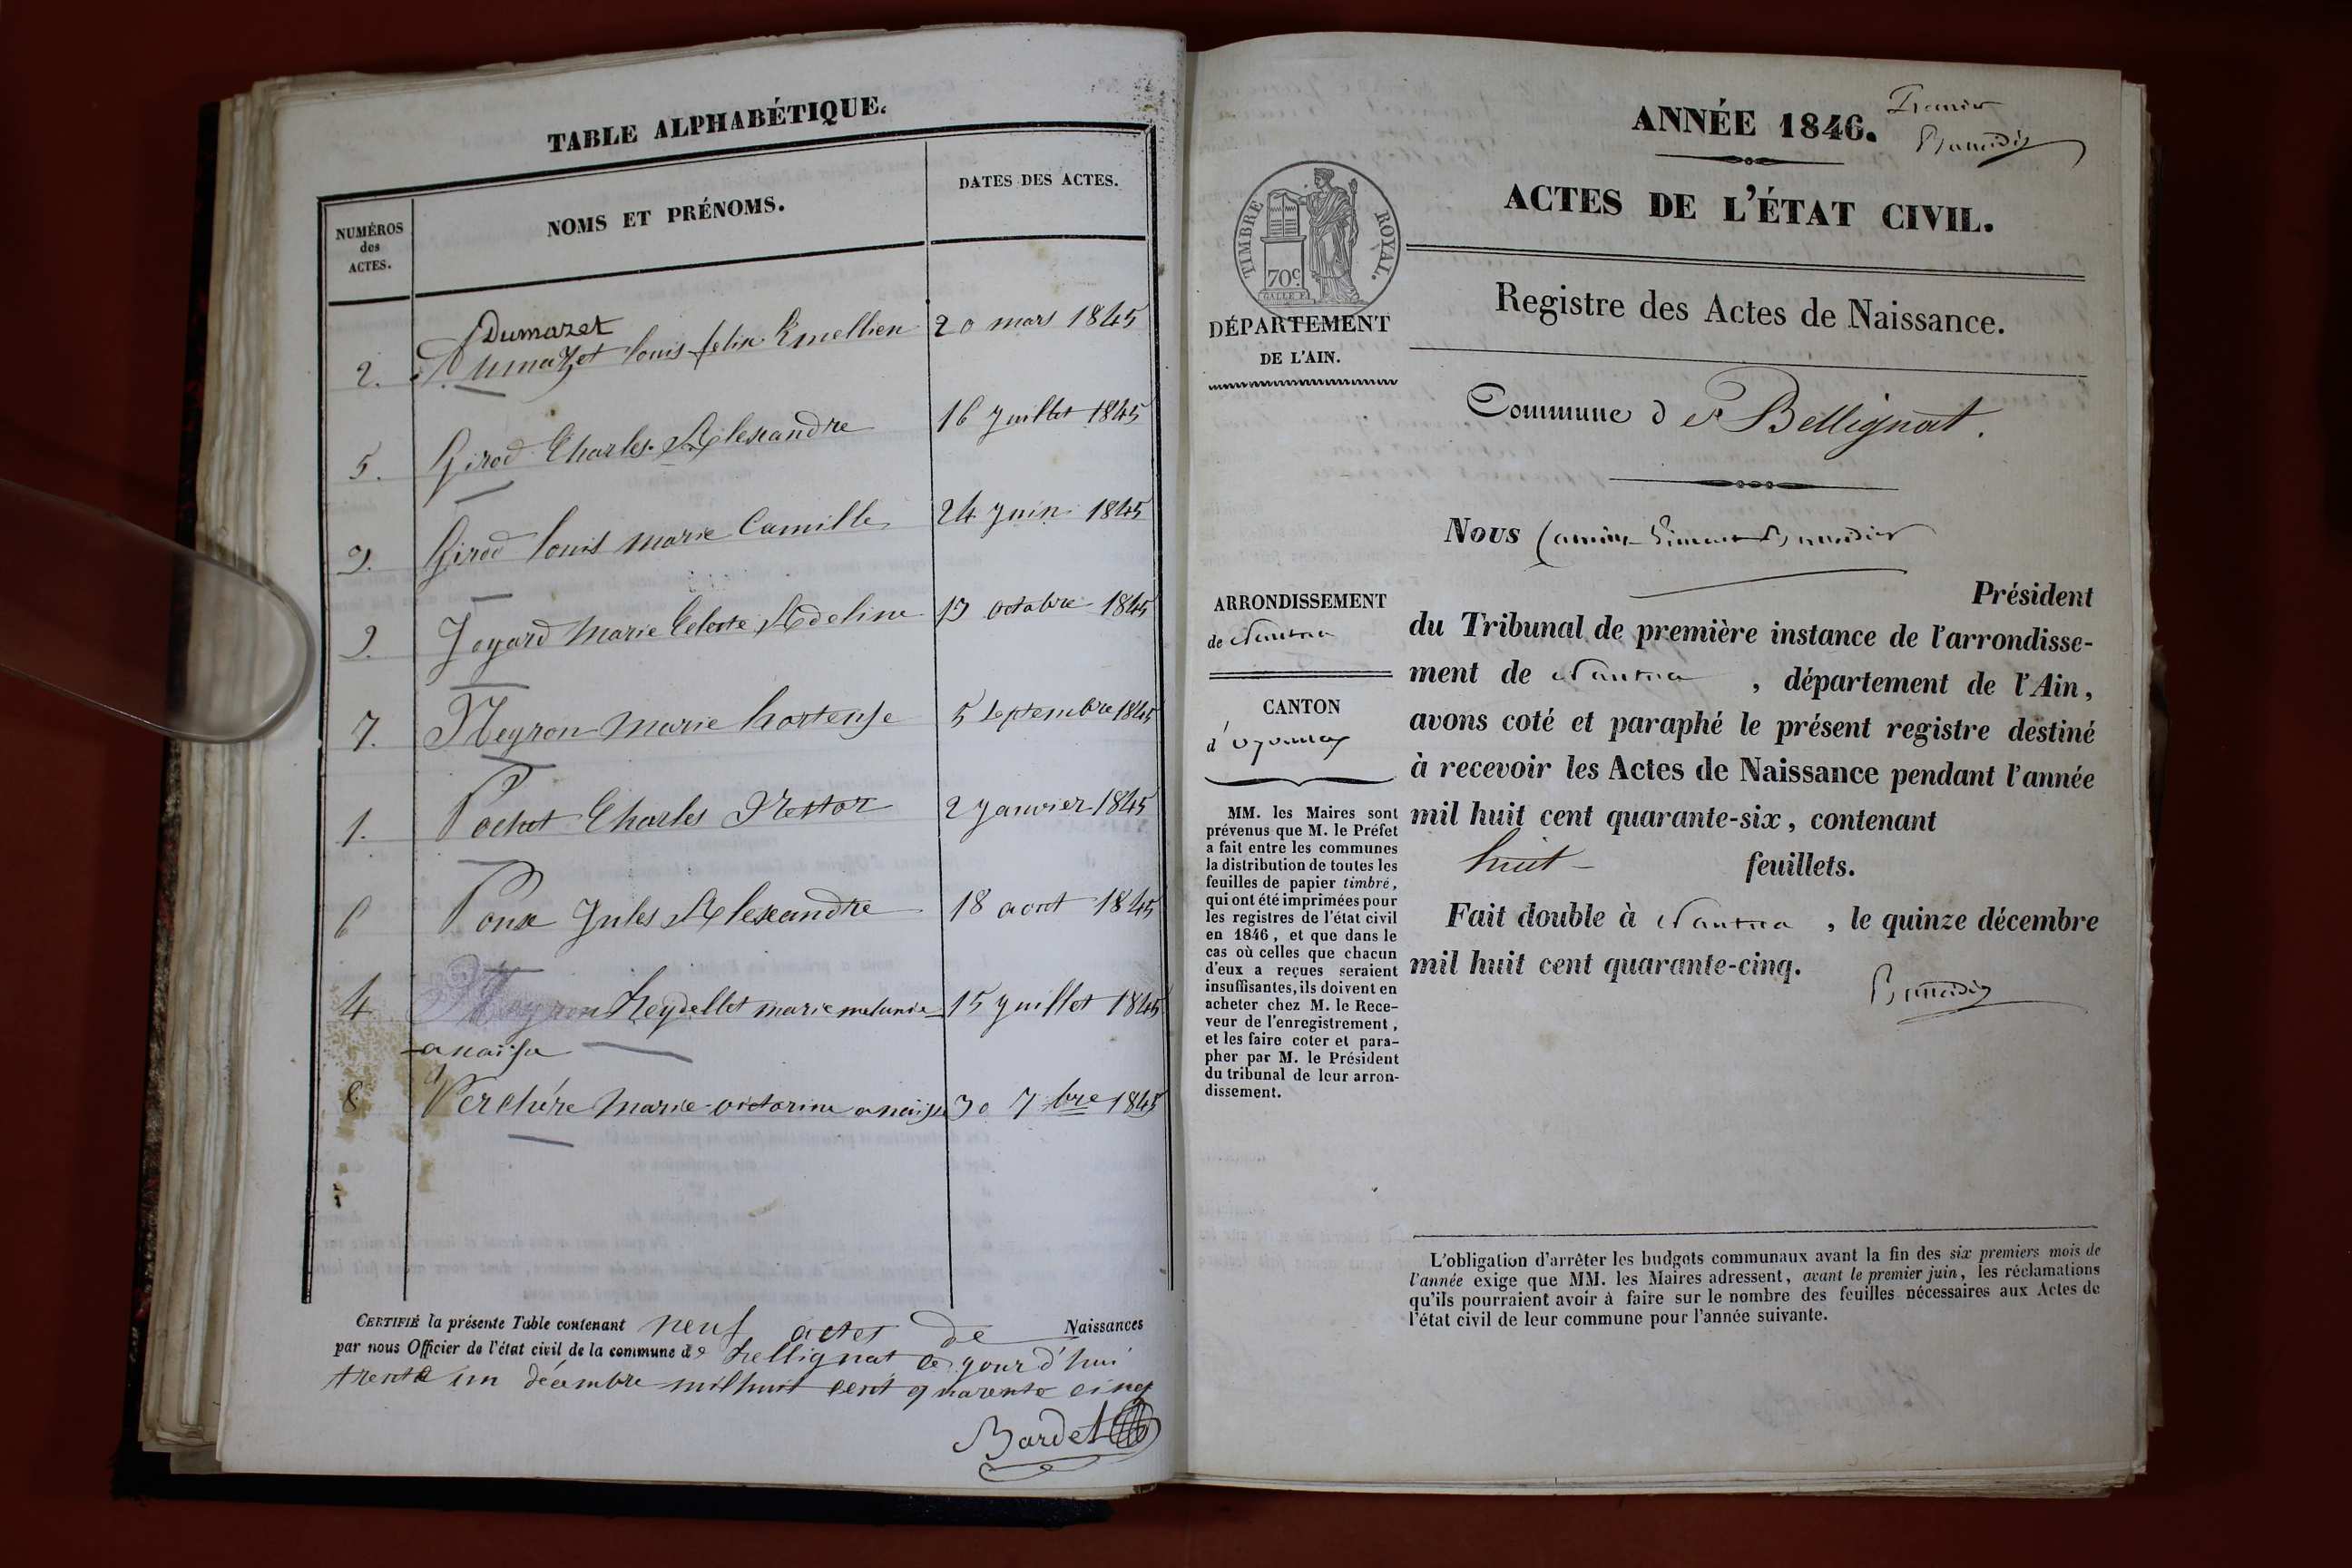 TABLE ALPHABÉTIQUE.
NUMÉROS
des
ACTES.
NOMS ET PRÉNOMS.
DATES DES ACTES.
Dumazet
2. Dumazet louis felix Emellien 20 mars 1845
5. Girod Charles Alexandre 16 juillet 1845
3. Girod louis marie Camille 24 juin 1845
9. Joyard Marie Celeste Adeline octobre 1845
7. Neyron Marie hortense 5 septembre 1845
1. Pochet Charles Nestor 2 janvier 1845
6 Poux Jules Alexandre 18 aout 1845
4 Reydellet marie melanie 15 juillet 1845
anaise
8 Verchère Marie victorine anaise 30 7bre 1845
CERTIFIÉ la présente Table contenant neuf actes de Naissances
par nous Officier de l'état civil de la commune de Bellignat ce jour d'hui
trente un décembre mil huit cent quarente cinq
Bardet
ANNÉE 1846.
Premier
ACTES DE L'ÉTAT CIVIL.
TIMBRE ROYAL.
70c
DÉPARTEMENT
DE L'AIN.
Registre des Actes de Naissance.
Commune de Bellignat.
Nous
Président
ARRONDISSEMENT
de Nantua
du Tribunal de première instance de l'arrondisse-
ment de Nantua, département de l'Ain,
CANTON
d'Oyonnax
avons coté et paraphé le présent registre destiné
à recevoir les Actes de Naissance pendant l'année
mil huit cent quarante-six, contenant
huit feuillets.
Fait double à Nantua, le quinze décembre
mil huit cent quarante-cinq.
MM. les Maires sont
prévenus que M. le Préfet
a fait entre les communes
la distribution de toutes les
feuilles de papier timbré,
qui ont été imprimées pour
les registres de l'état civil
en 1846, et que dans le
cas où celles que chacun
d'eux a reçues seraient
insuffisantes, ils doivent en
acheter chez M. le Rece-
veur de l'enregistrement,
et les faire coter et para-
pher par M. le Président
du tribunal de leur arron-
dissement.
L'obligation d'arrêter les budgets communaux avant la fin des six premiers mois de
l'année exige que MM. les Maires adressent, avant le premier juin, les réclamations
qu'ils pourraient avoir à faire sur le nombre des feuilles nécessaires aux Actes de
l'état civil de leur commune pour l'année suivante.